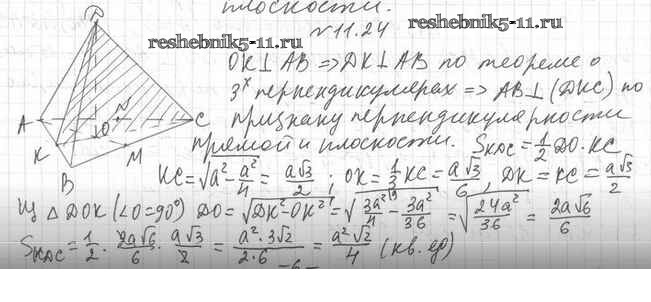 плоскости.
№11.24
reshebnik5-11.ru
reshebnik5-11.ru
OK⊥AB ⇒ DK⊥AB по теореме о
3ˣ перпендикулярах ⇒ AB⊥(DKC) по
признаку перпендикулярности
прямой и плоскости. S_KDC = 1/2 DO·KC
KC = √(a² - a²/4) = a√3/2 ; OK = 1/3 KC = a√3/6, DK = KC = a√3/2
Из △DOK (∠O=90°) DO = √(DK² - OK²) = √(3a²/4 - 3a²/36) = √(24a²/36) = 2a√6/6
S_KDC = 1/2 · 2a√6/6 · a√3/2 = a²·3√2/2·6 = a²√2/4 (кв. ед)
D
A
K
B
O
N
M
C